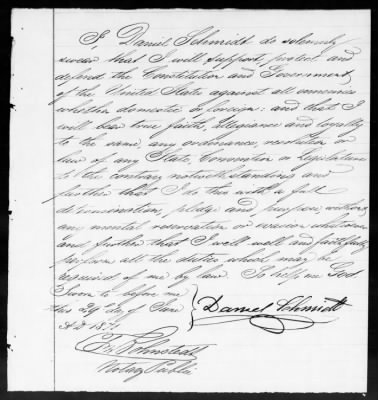 I, Daniel Schmidt do solemnly
swear that I will support, protect and
defend the Constitution and Government
of the United States against all enemies
whether domestic or foreign: and that I
will bear true faith, allegiance and loyalty
to the same, any ordinance, resolution or
law of any State, Convention or Legislature
to the contrary notwithstanding and
further that I do this with a full
determination, pledge and purpose, without
any mental reservation or evasion whatsoever
and further that I will well and faithfully
perform all the duties which may be
required of me by law. So help me God
Sworn to before me
this 29 day of June
Daniel Schmidt
A.D. 1871
Notary Public